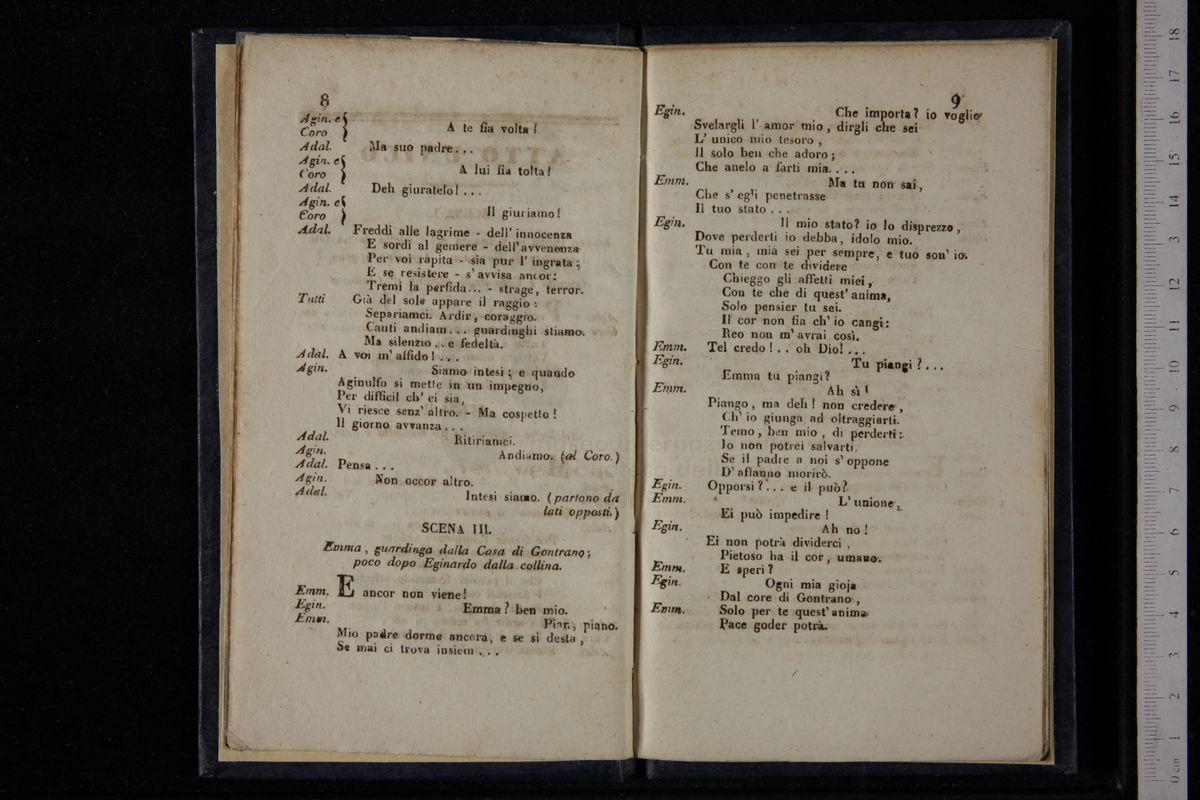 8
Agin. e
Coro } A te fia volta!
Adal. Ma suo padre...
Agin. e
Coro } A lui fia tolta!
Adal. Deh giuratelo!...
Agin. e
Coro } Il giuriamo!
Adal. Freddi alle lagrime - dell' innocenza
E sordi al gemere - dell' avvenenza
Per voi rapita - sia pur l' ingrata;
E se resistere - s' avvisa ancor:
Tremi la perfida... - strage, terror.
Tutti Già del sole appare il raggio:
Separiamci. Ardir, coraggio.
Cauti andiam... guardinghi stiamo.
Ma silenzio.. e fedeltà.
Adal. A voi m' affido!...
Agin. Siamo intesi; e quando
Aginulfo si mette in un impegno,
Per difficil ch' ei sia,
Vi riesce senz' altro. - Ma cospetto!
Il giorno avvanza...
Adal. Ritiriamci.
Agin. Andiamo. (al Coro.)
Adal. Pensa...
Agin. Non occor altro.
Adal. Intesi siamo. (partono da
lati opposti.)
SCENA III.
Emma, guardinga dalla Casa di Gontrano;
poco dopo Eginardo dalla collina.
Emm. E ancor non viene!
Egin. Emma? ben mio.
Emm. Pian, piano.
Mio padre dorme ancora, e se si desta,
Se mai ci trova insiem...
9
Egin. Che importa? io voglio
Svelargli l' amor mio, dirgli che sei
L' unico mio tesoro,
Il solo ben che adoro;
Che anelo a farti mia....
Emm. Ma tu non sai,
Che s' egli penetrasse
Il tuo stato...
Egin. Il mio stato? io lo disprezzo,
Dove perderti io debba, idolo mio.
Tu mia, mia sei per sempre, e tuo son' io.
Con te con te dividere
Chieggo gli affetti miei,
Con te che di quest' anima,
Solo pensier tu sei.
Il cor non fia ch' io cangi:
Reo non m' avrai così.
Emm. Tel credo!.. oh Dio!...
Egin. Tu piangi?...
Emma tu piangi?
Emm. Ah sì!
Piango, ma deh! non credere,
Ch' io giunga ad oltraggiarti.
Temo, ben mio, di perderti:
Io non potrei salvarti.
Se il padre a noi s' oppone
D' affanno morirò.
Egin. Opporsi?... e il può?
Emm. L' unione,
Ei può impedire!
Egin. Ah no!
Ei non potrà dividerci,
Pietoso ha il cor, umano.
Emm. E speri?
Egin. Ogni mia gioja
Dal core di Gontrano,
Emm. Solo per te quest' anima
Pace goder potrà.